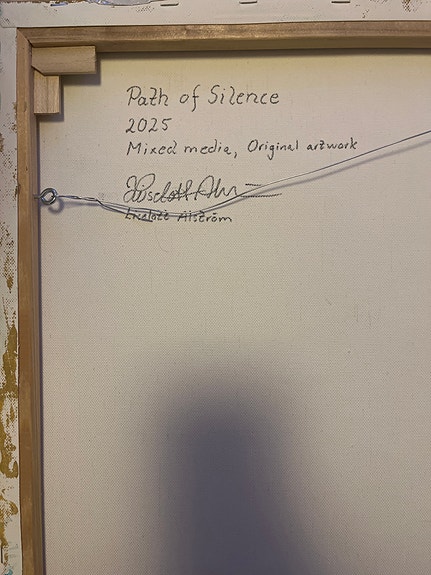 Path of Silence
2025
Mixed media, Original artwork
Liselott Alström